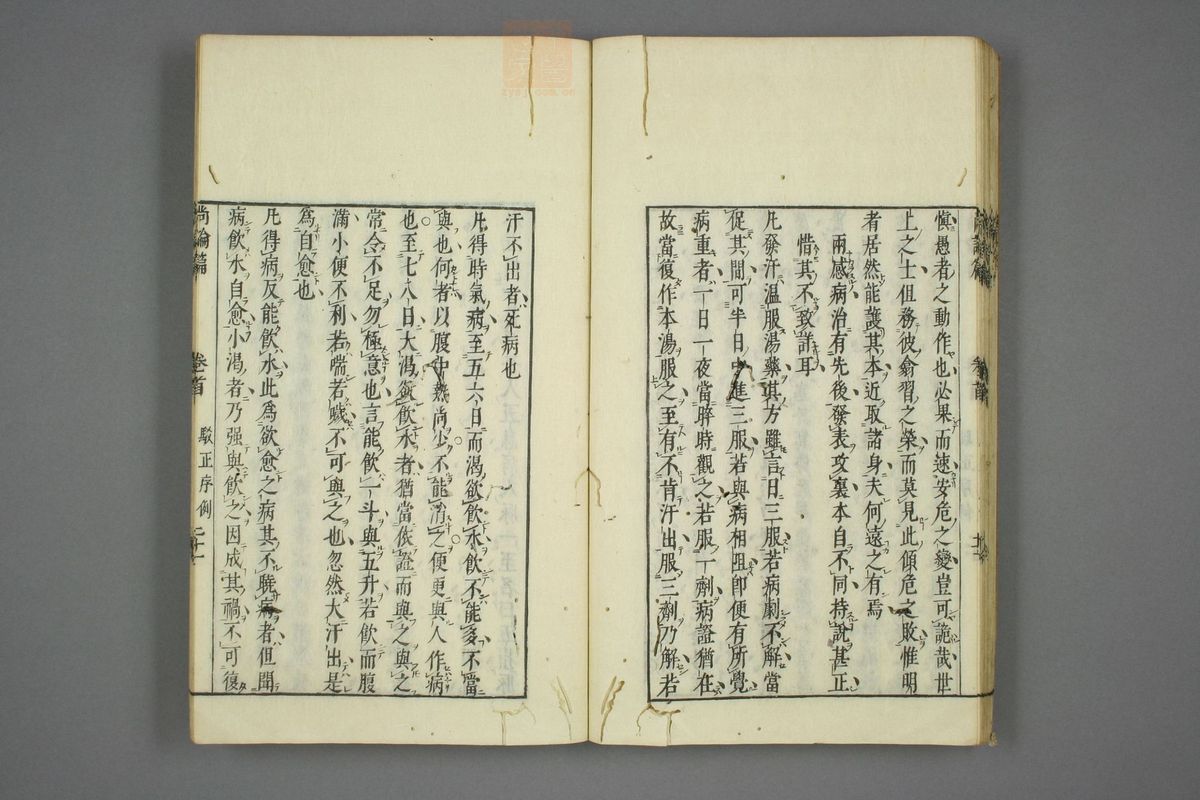 慎愚者之動作也必果而速安危之變豈可詭哉世
上之士但務彼翕習之榮而莫見此傾危之敗惟明
者居然能護其本近取諸身夫何遠之有焉
兩感病治有先後發表攻裏本自不同持說甚正
惜其不致詳耳
凡發汗温服湯藥其方雖言日三服若病劇不解當
促其間可半日中進三服若與病相阻即便有所覺
病重者一日一夜當晬時觀之若服一劑病證猶在
故當復作本湯服之至有不肯汗出服三劑乃解若
汗不出者死病也
凡得時氣病至五六日而渴欲飲水飲不能多不當
與也何者以腹中熱尚少不能消之便更與人作病
也至七八日大渴欲飲水者猶當依證而與之與之
常令不足勿極意也言能飲一斗與五升若飲而腹
滿小便不利若喘若噦不可與之也忽然大汗出是
為自愈也
凡得病反能飲水此為欲愈之病其不曉病者但聞
病飲水自愈小渴者乃强與飲之因成其禍不可復
尚論篇
卷首
駁正序例
zysj.com.cn